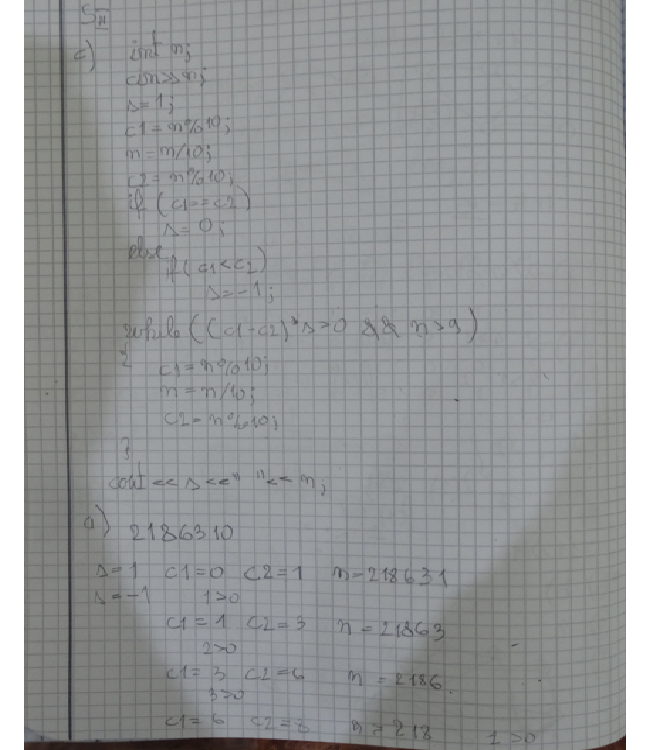 c) int n;
cin>>n;
s=1;
c1=n%10;
n=n/10;
c2=n%10;
if (c1==c2)
s=0;
else
if(c1<c2)
s=-1;
while((c1-c2)*s>0 && n>9)
{
c1=n%10;
n=n/10;
c2=n%10;
}
cout<<s<<" "<<n;
a) 2186310
s=1 c1=0 c2=1 n=218631
s=-1 1>0
c1=1 c2=3 n=21863
2>0
c1=3 c2=6 n=2186
3>0
c1=6 c2=8 n=218 1>0